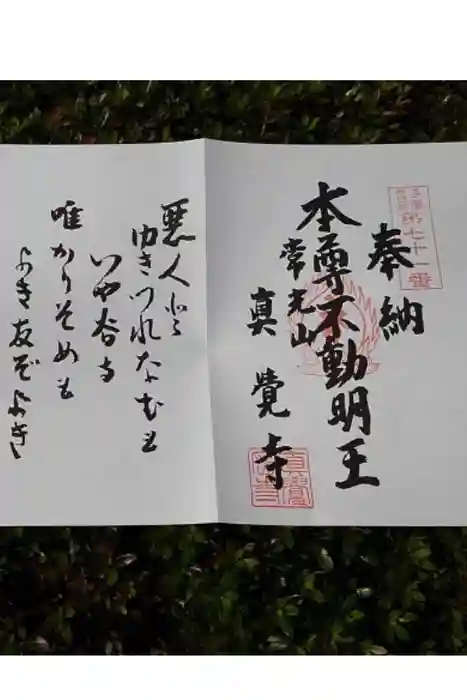 第七十一番
奉納
本尊不動明王
常光山
真覺寺
惡人と
ゆきつれなむも
いや谷寺
唯かりそめも
よき友ぞよき